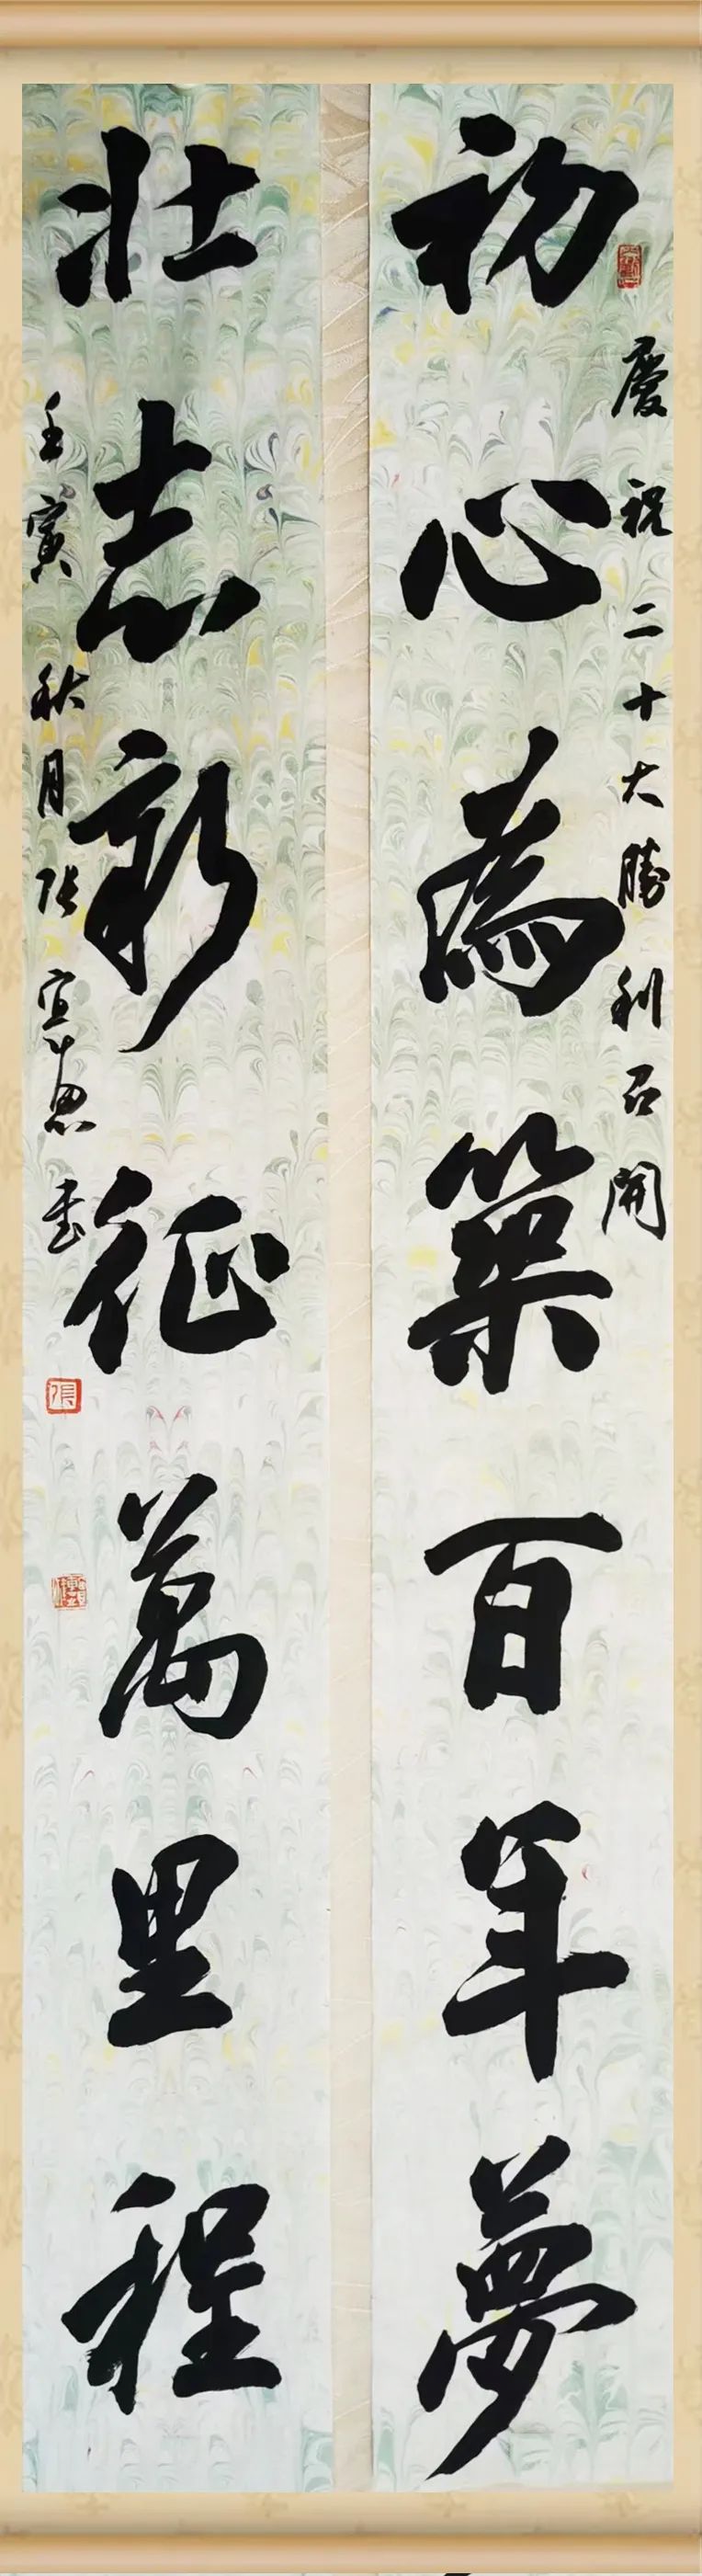 慶祝二十大勝利召開
初心為築百年夢
壯志新征萬里程
壬寅秋月張宜惠書
張